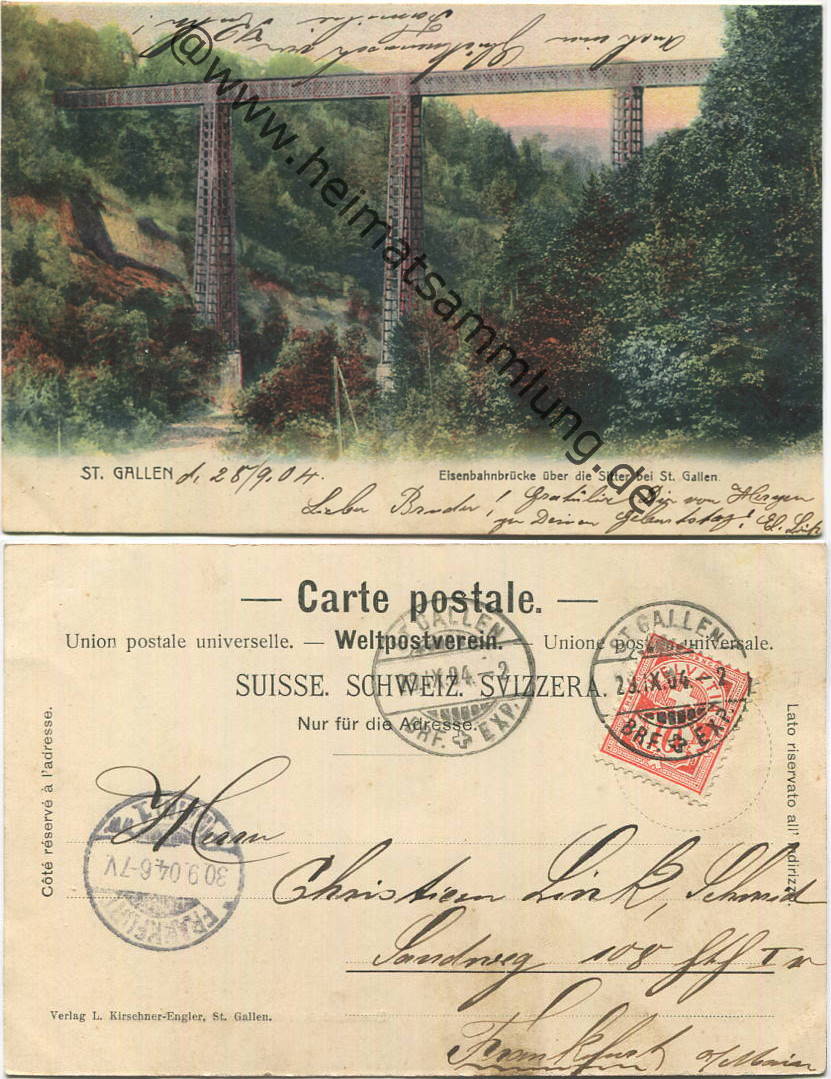 Auch von
Familie
@www.heimatsammlung.de
ST. GALLEN d. 28/9.04.
Eisenbahnbrücke über die Sitter bei St. Gallen.
Lieber Bruder! Gratuliere Dir von Herzen
zu Deinem Geburtstag!
— Carte postale. —
Union postale universelle. — Weltpostverein. — Unione postale universale.
SUISSE. SCHWEIZ. SVIZZERA.
Nur für die Adresse.
ST. GALLEN
29.IX.04. 2
BRF. EXP.
ST. GALLEN
29.IX.04 2
BRF. EXP.
HELVETIA
10
Côté réservé à l'adresse.
Lato riservato all' indirizzo.
FRANKFURT
30.9.04.6-7V.
Herrn
Christian Link, Schmid
Sandweg 108 Hth I
Frankfurt a/Main
Verlag L. Kirschner-Engler, St. Gallen.